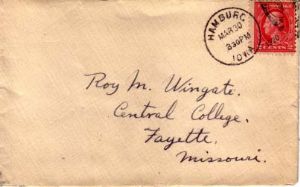 HAMBURG
MAR 30
830PM
IOWA
2 CENTS 2
Roy M. Wingate.
Central College.
Fayette,
Missouri.